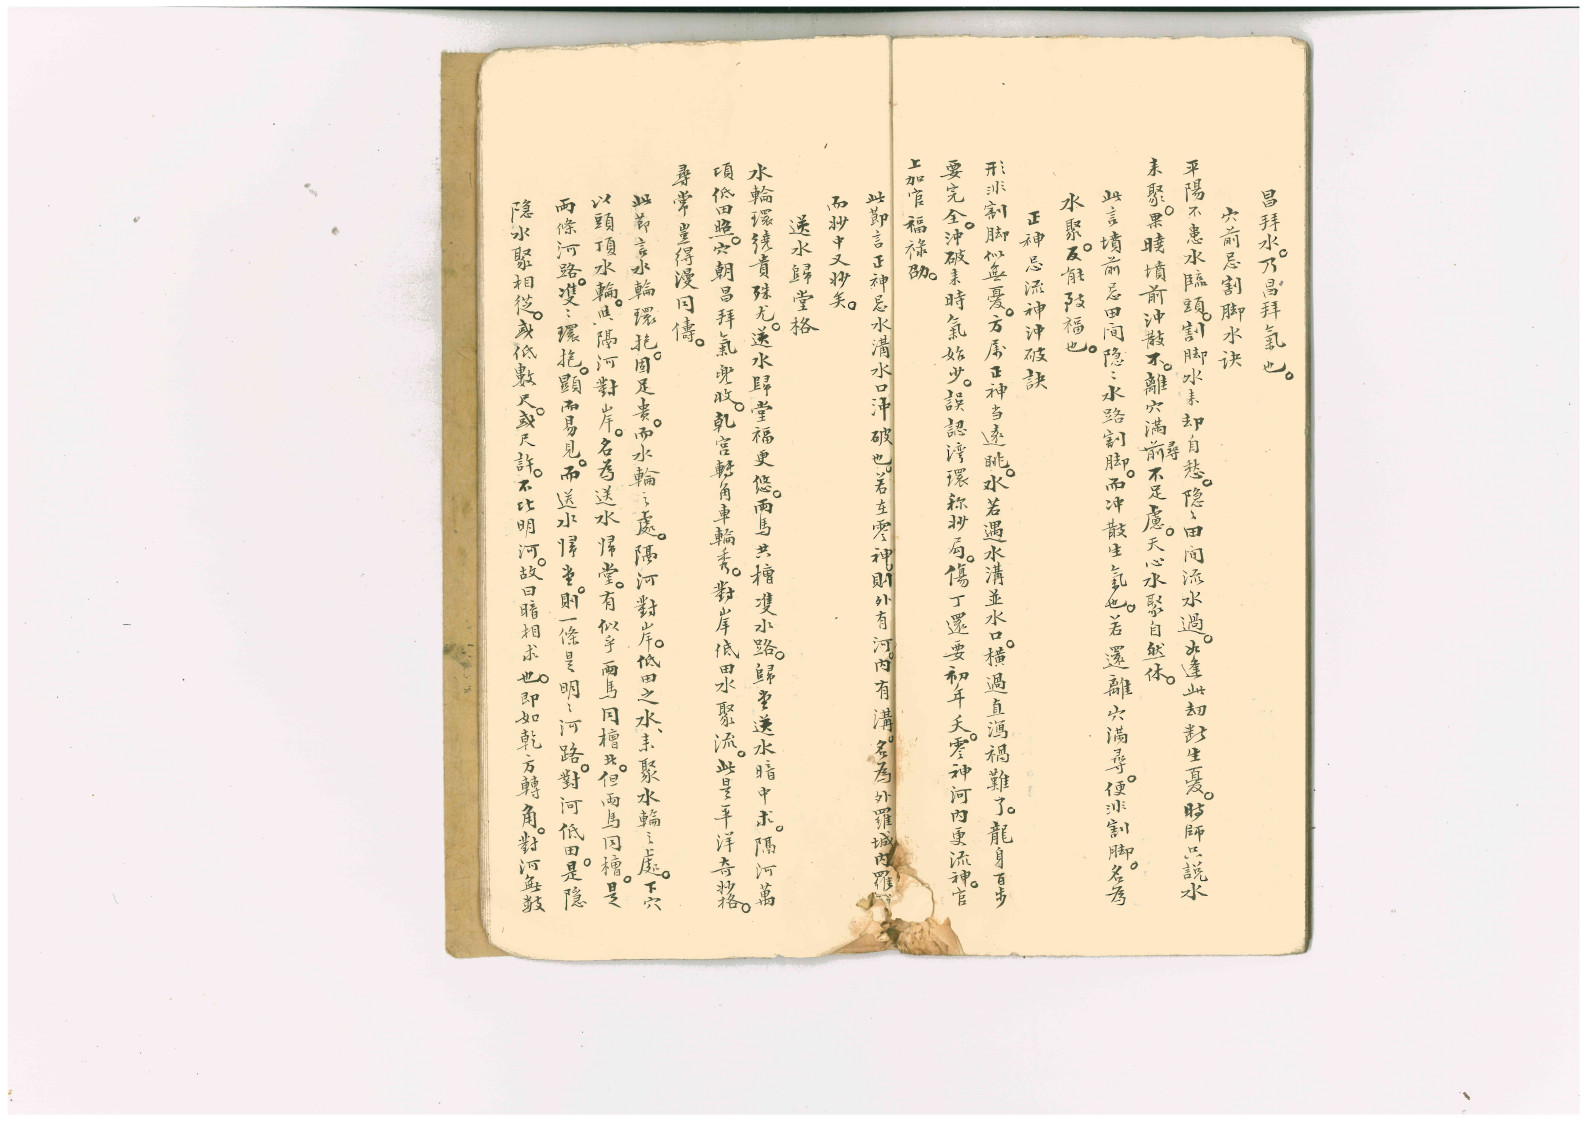 昌拜水。乃昌拜氣也。
穴前忌割脚水诀
平陽不患水臨頭。割脚水来却自愁。隐〻田间流水過。如逢此刼斷生憂。時師只説水
来聚。果曉墳前沖散不。離穴滿尋前不足慮。天心水聚自然休。
此言墳前忌田间隐〻水路割脚。而冲散生氣也。若還離穴滿尋。便非割脚。名為
水聚。反能致福也。
正神忌流神沖破訣
形非割脚似無憂。方属正神当遠眺。水若遇水溝並水口。橫過直瀉禍難了。龍身百步
要完全。沖破来時氣始少。誤認湾環称妙局。傷丁還要初年夭。零神河内更流神。官
上加官福禄劭。
此節言正神忌水溝水口沖破也。若在零神。則外有河。内有溝。名為外羅城内羅
而妙中又妙矣。
送水歸堂格
水輪環繞貴殊尤。送水歸堂福更悠。兩馬共槽雙水路。歸堂送水暗中求。隔河萬
頃低田照。穴朝昌拜氣兜收。乾宫轉角車輪秀。對岸低田水聚流。此是平洋奇妙格。
尋常豈得漫同儔。
此節言水輪環抱。固足貴。而水輪之處。隔河對岸。低田之水、来聚水輪之處。下穴
以頭頂水輪。照隔河對岸。名為送水歸堂。有似乎兩馬同槽共。但兩馬同槽。是
兩條河路。雙〻環抱。顯而易見。而送水歸堂。則一條是明〻河路。對河低田。是隐
隐水聚相從。或低數尺。或尺許。不比明河。故曰暗相求也。即如乾方轉角。對河無數